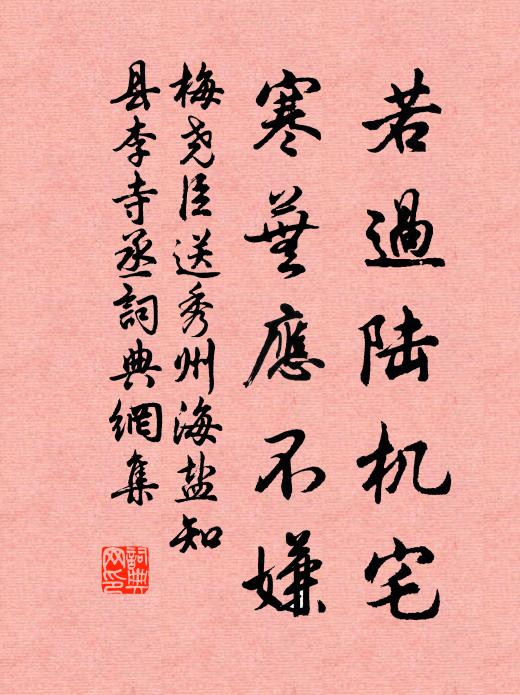 若過陆机宅
寒葑應不嫌
梅尧臣送秀州海盐知
县李寺丞詞典網集
詞典网印